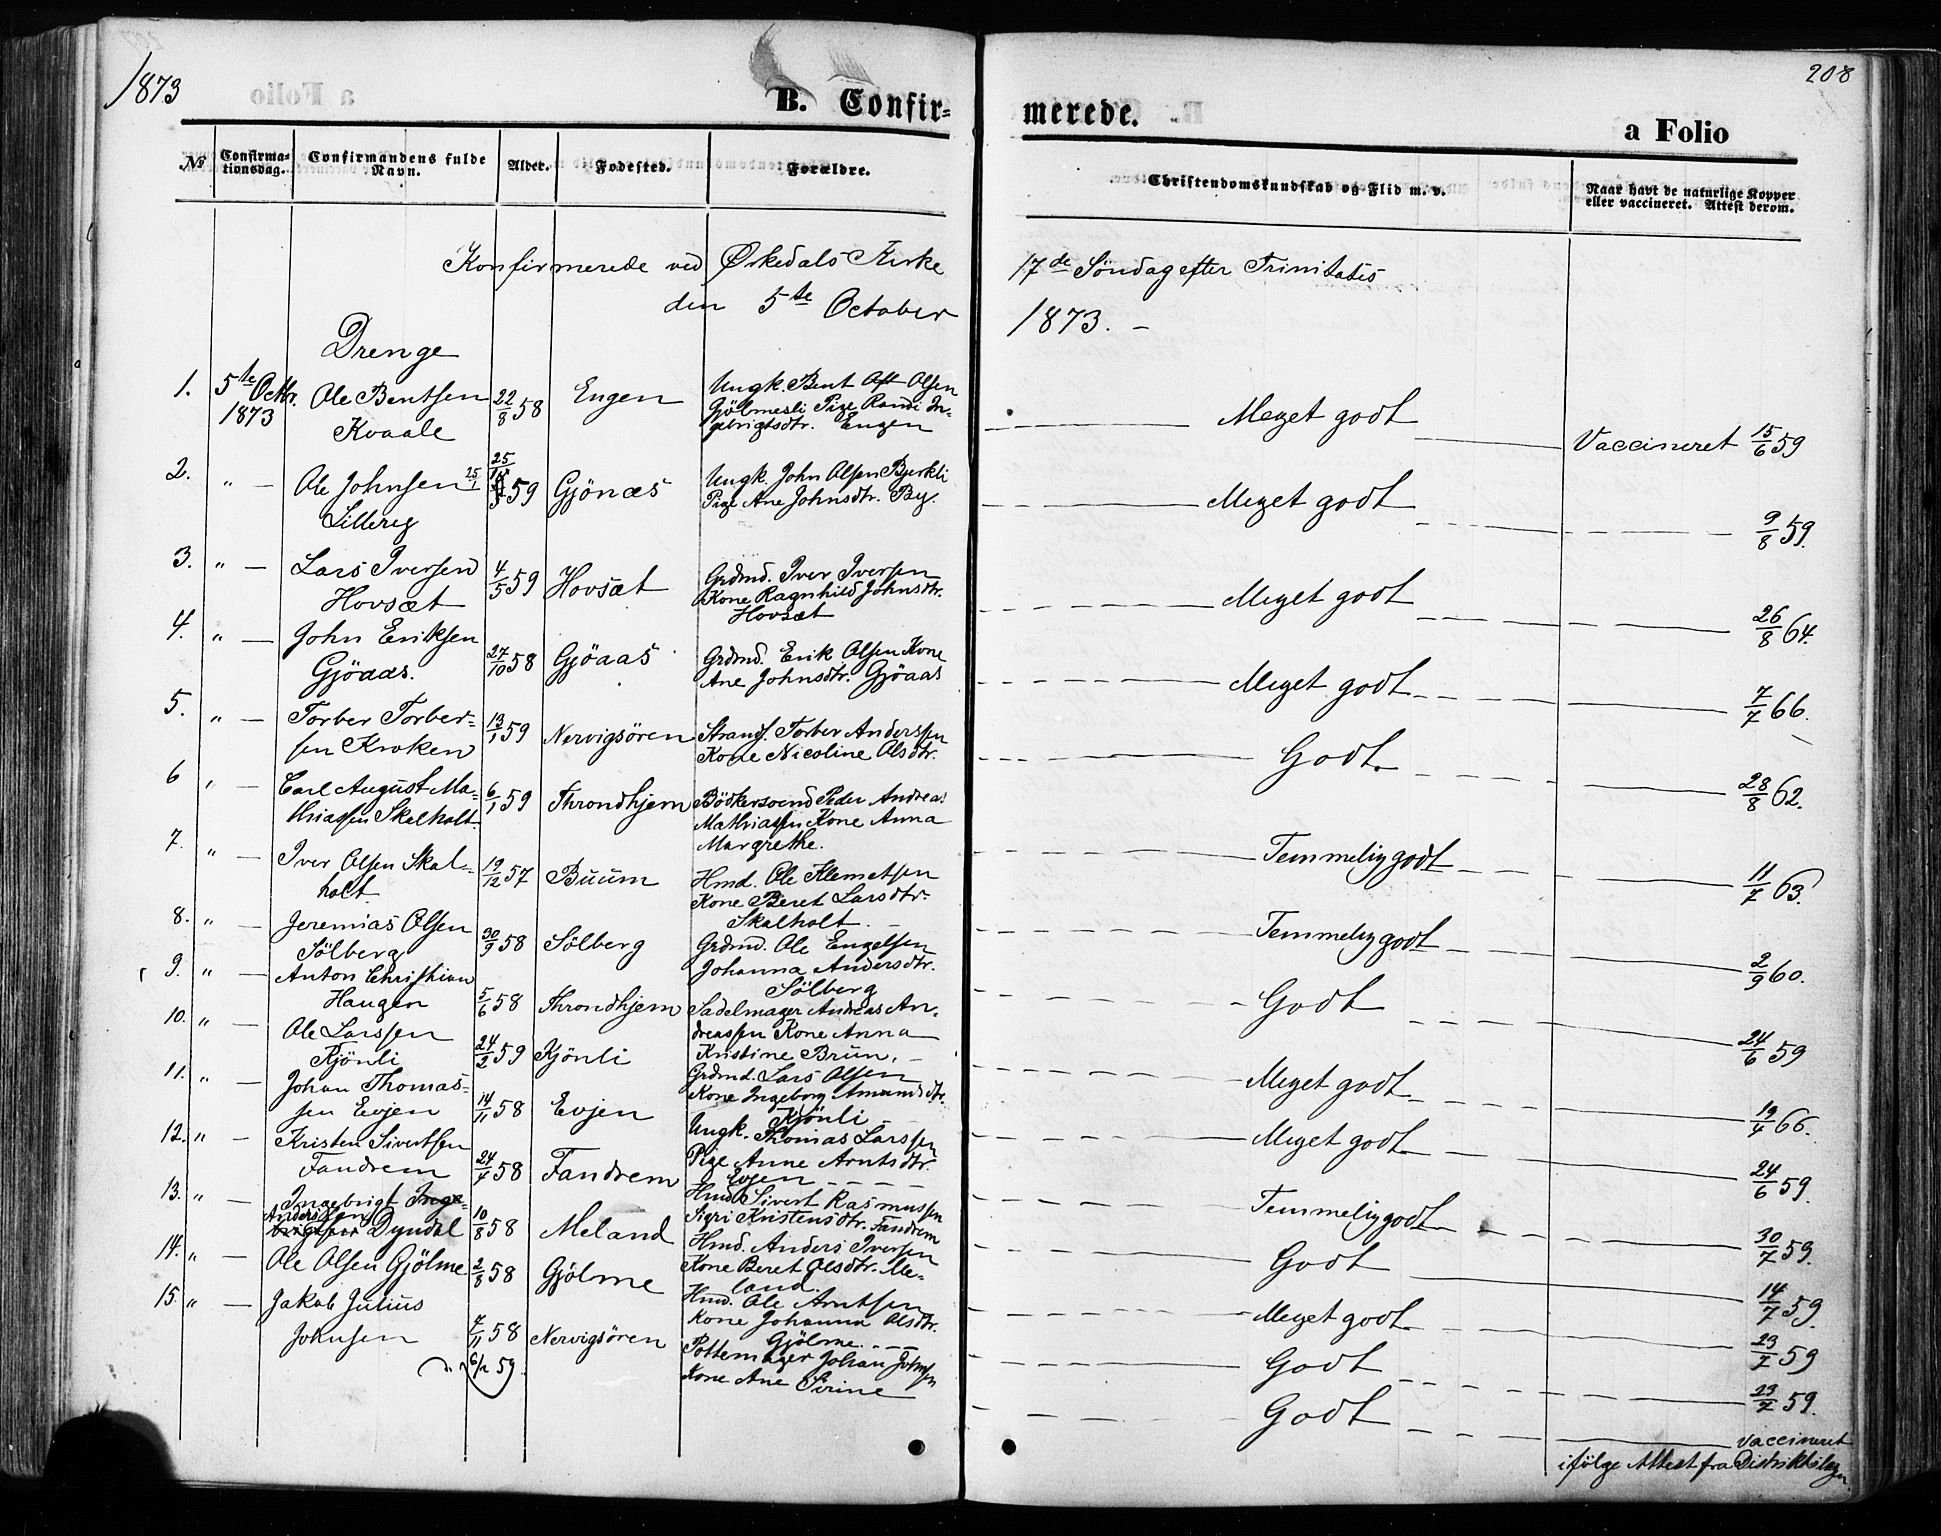 1873
208
B. Confir-
merede.
a Folio
№
Confirma-
tionsdag.
Confirmandens fulde
Navn.
Alder.
Fødested.
Forældre.
Christendomskundskab og Flid m. v.
Naar havt de naturlige Kopper
eller vaccineret. Attest derom.
Konfirmerede ved Ørkedals Kirke 17de Söndag efter Trinitatis
den 5te October 1873. –
Drenge
1. 5te Octbr. 1873
Ole Bentsen
Kvaale
22/8 58
Engen
Ungk. Bent Olsen
Gjölmesli Pige Randi In-
gebrigtsdtr. Engen
Meget godt
Vaccineret 15/6 59
2. " —
Ole Johnsen 25/1
Lillerey
25/1 59
Gjönæs
Ungk. John Olsen Bjerkli
Pige Ane Johnsdtr. By.
Meget godt
9/8 59.
3. " —
Lars Iversen
Hovsæt
4/5 59
Hovsæt
Grdmd. Iver Iversen
Kone Ragnhild Johnsdtr.
Hovsæt
Meget godt
26/8 64.
4. " —
John Eriksen
Gjöaas.
27/10 58
Gjöaas
Grdmd. Erik Olsen Kone
Ane Johnsdtr. Gjöaas
Meget godt
7/7 66.
5. " —
Torber Torber-
sen Kroken
13/1 59
Nervigsören
Strands. Torber Anderssen
Kone Nicoline Olsdtr.
Godt.
28/8 62.
6 " —
Carl August Ma-
thiassen Skalholt.
6/1 59
Throndhjem
Bödkersvend Peder Andreas
Mathiassen Kone Anna
Margrethe.
Temmelig godt
11/7 63.
7. " —
Iver Olsen Skal-
holt.
19/12 57
Buum
Hmd. Ole Klemetsen
Kone Beret Larsdtr.
Skalholt.
Temmelig godt
2/9 60.
8. " —
Jeremias Olsen
Sölberg
30/9 58
Sölberg
Grdmd. Ole Engelsen
Johanna Andersdtr.
Sölberg
Godt
24/6 59
9. " —
Anton Christian
Haugen
5/6 58
Throndhjem
Sadelmager Andreas An-
dreassen Kone Anna
Kristine Brun. –
Meget godt
19/4 66.
10. " —
Ole Larssen
Kjönli
24/2 59
Kjönli
Grdmd. Lars Olsen
Kone Ingeborg Amundsdtr.
Kjönli –
Meget godt
24/6 59.
11. " —
Johan Thomas-
sen Evjen
14/11 58
Evjen
Ungk. Thomas Larssen
Pige Anne Arntsdtr.
Evjen
Temmelig godt
30/7 59.
12. " —
Kristen Sivertsen
Fandrem
24/4 58
Fandrem
Hmd Sivert Rasmussen
Sigri Kristensdtr. Fandrem
Godt
14/7 59.
13. " —
Ingebrigt Inge-
Anderssen
brigtsen Dyndal
10/8 58
Meland
Hmd. Anders Iversen
Kone Beret Olsdtr. Me-
land.
Meget godt
23/7 59
14. " —
Ole Olsen Gjölme
2/8 58
Gjölme
Hmd. Ole Arntsen
Kone Johanna Olsdtr.
Gjölme.
Godt
23/7 59.
15. " —
Jakob Julius
Johnsen
7/11 58
Nervigsören
Pottemager Johan Johnsen
Kone Ane Sirine
Godt
vaccineret
ifölge Attest fra